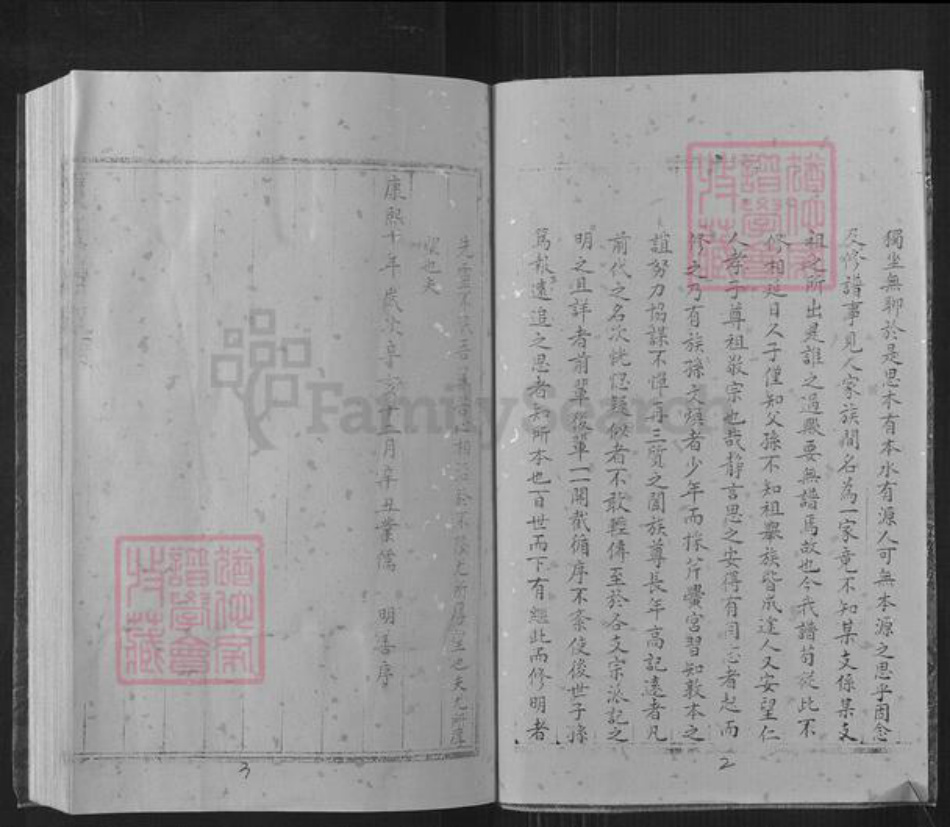 獨坐無聊於是思木有本水有源人可無本源之思乎因念
及修譜事見人家族間名為一家竟不知某支係某支
祖之所出是誰之過歟要無譜焉故也今我譜苟從此不
修相延日久子僅知父孫不知祖舉族皆成途人又安望仁
人孝子尊祖敬宗也哉靜言思之安得有同志者起而
修之乃有族孫文煩者少年而採芹黌宮習知敦本之
誼努力協謀不憚再三質之闔族尊長年高記遠者凡
前代之名次恍惚疑似者不敢輕傳至於各支宗派記之
明之且詳者前輩後輩一一開載循序不紊使後世子孫
篤報遠追之思者知所本也百世而下有繼此而修明者
先靈不
望也夫
康熙十年歲次辛亥十二月辛丑業儒 明善序
2
3
FamilySearch